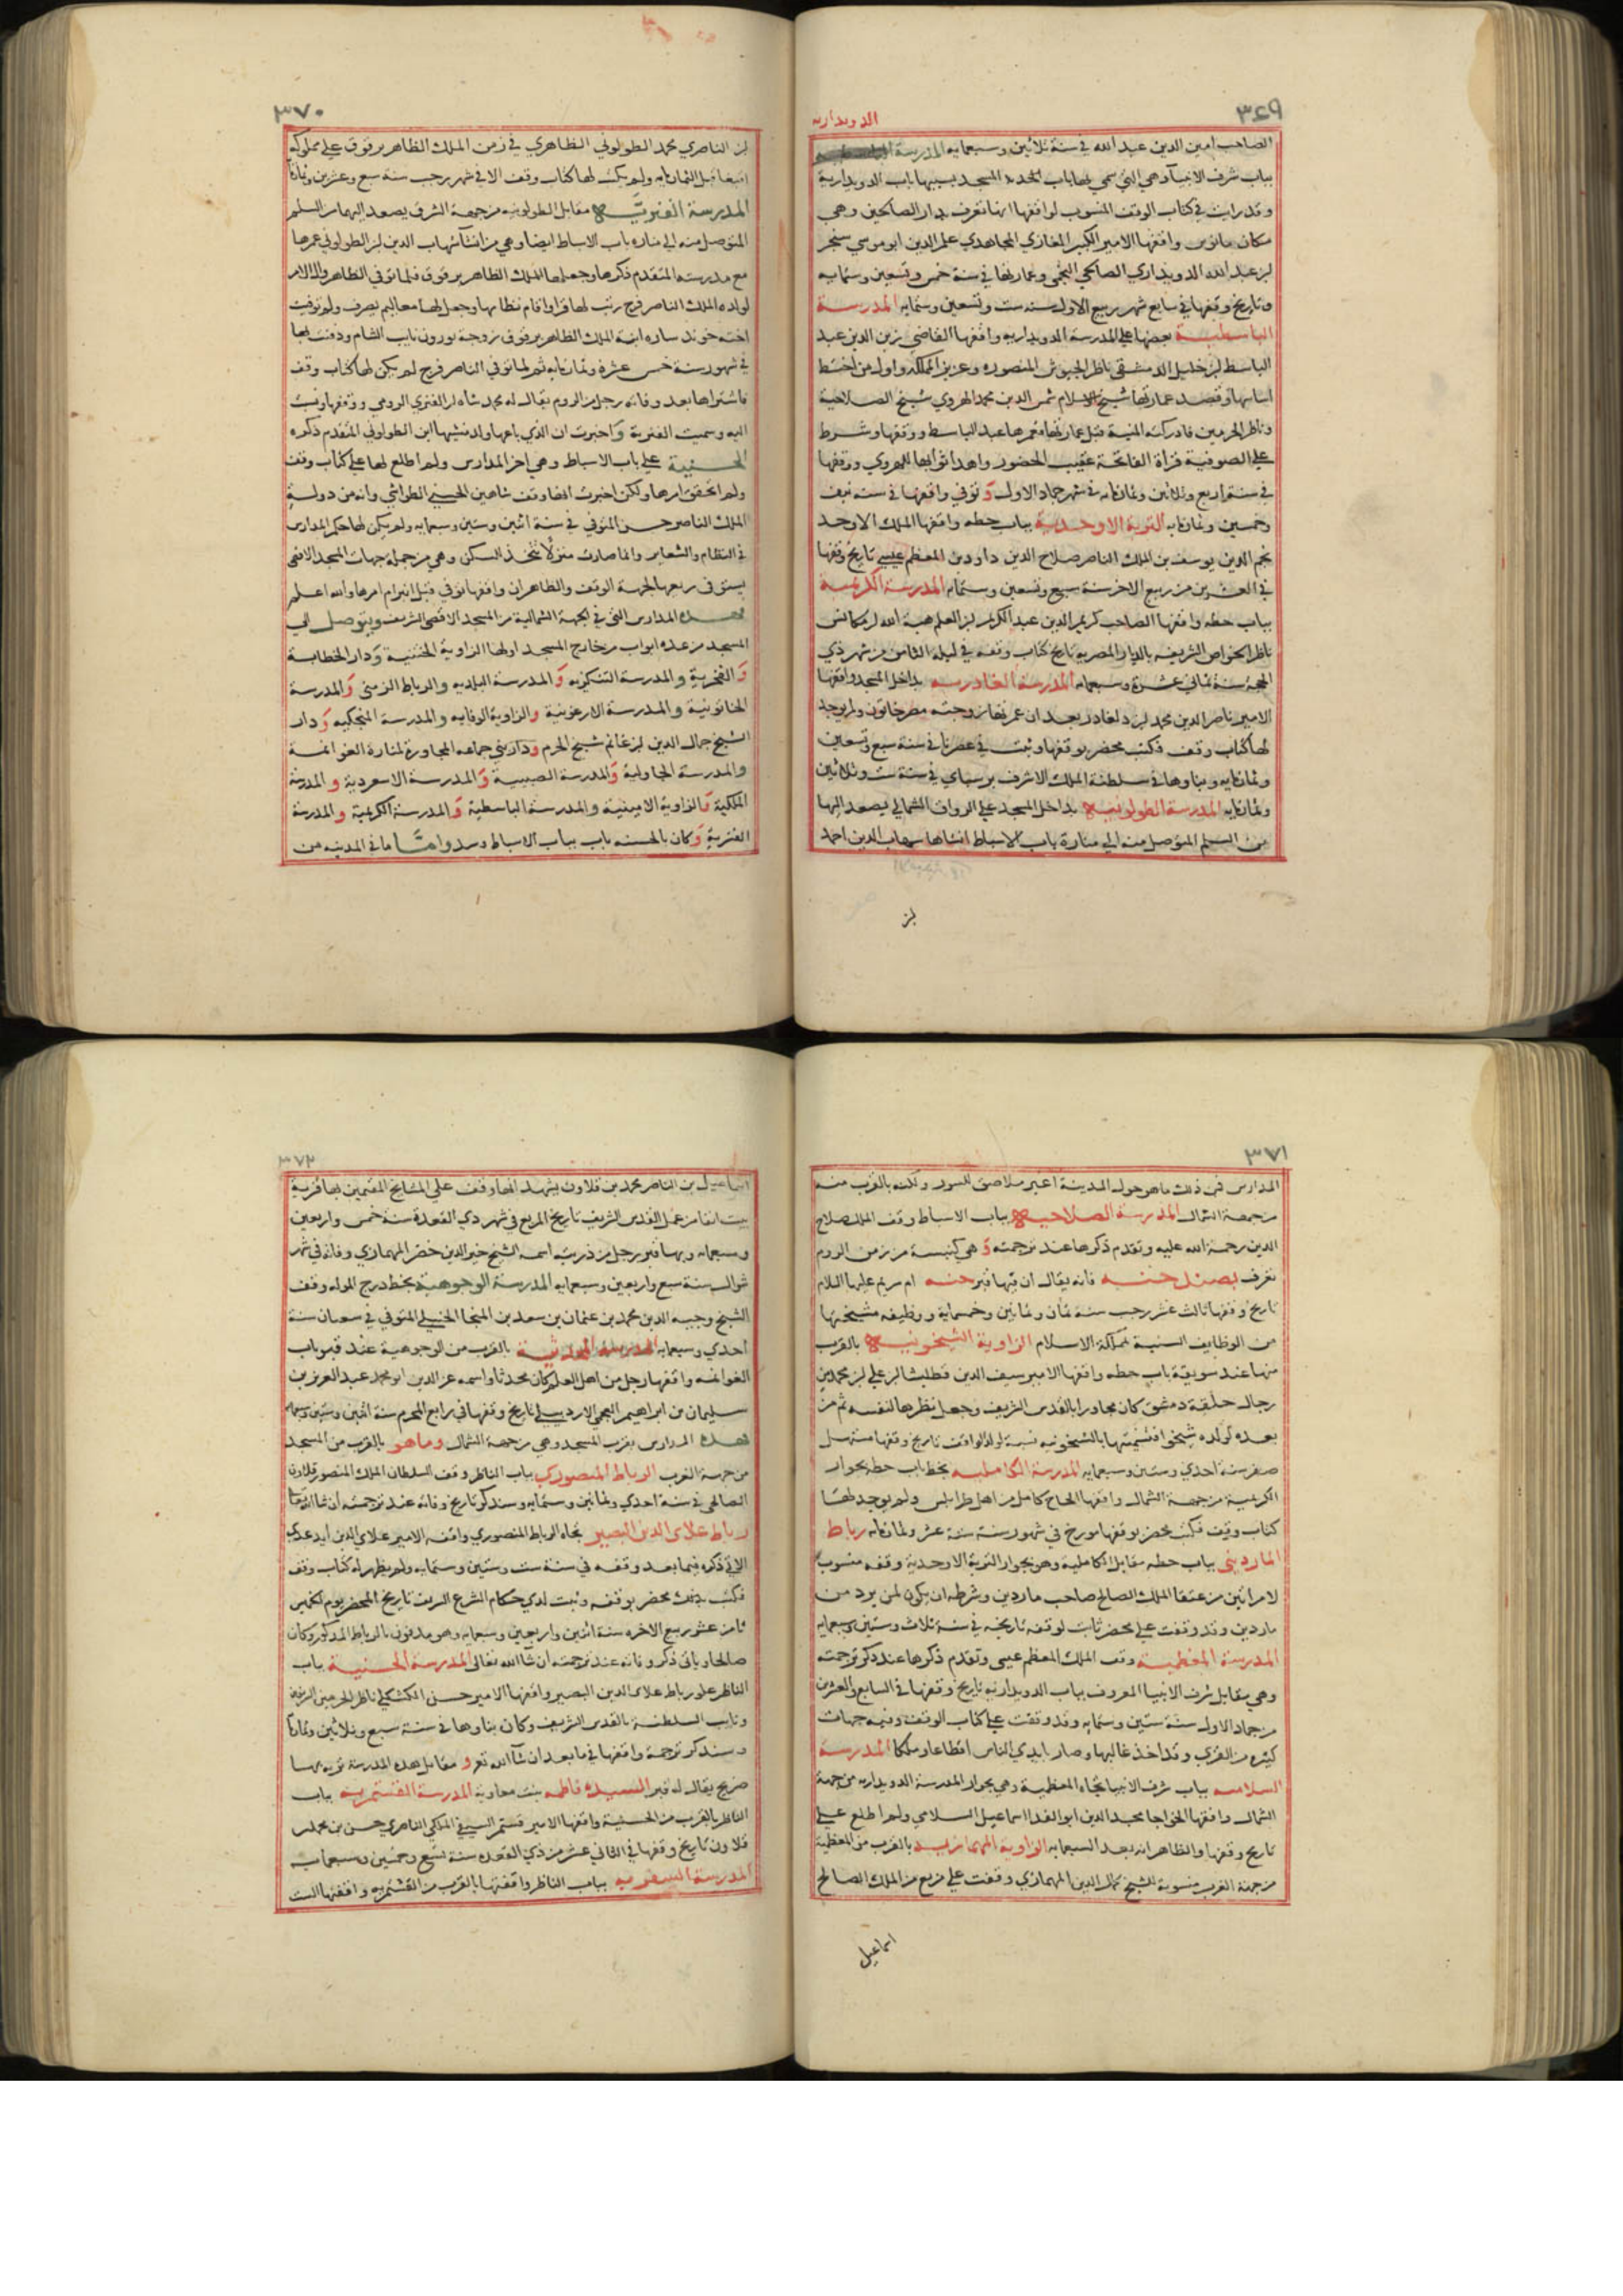 ٣٤٩
الدويدارية
الصاحب امين الدين عبد الله في سنة ثلاثين وسبعمايه المدرسة
بباب شرف الانبيا وهي التي سمي لها باب المسجد بسببها باب الدويدارية
وقد رايت في كتاب الوقف المنسوب لواقفها انها تعرف بدار الصالحين وهي
مكان مانوس واقفها الامير الكبير الغازي المجاهدي علم الدين ابو موسي سنجر
بن عبد الله الدويداري الصالحي النجمي وعمارتها في سنة خمس وتسعين وستمايه
وتاريخ وقفها في سابع شهر ربيع الاول سنه ست وتسعين وستمايه المدرسة
الباسطية بعضها علي المدرسة الدويداريه واقفها القاضي زين الدين عبد
الباسط بن خليل الدمشقي ناظر الجيوش المنصوره وعزيز المملكه واول من اختط
اساسها وقصد عمارتها شيخ الاسلام شمس الدين محمد الهروي شيخ الصلاحية
وناظر الحرمين فادركته المنية قبل عمارتها فعمرها عبد الباسط ووقفها وشرط
علي الصوفية قراة الفاتحة عقيب الحضور واهدا ثوابها للهروي ووقفها
في سنة اربع وثلاثين وثمانمايه في شهر جماد الاول وتوفي واقفها في سنه نيف
وخمسين وثمانمايه التربة الاوحدية بباب حطه واقفها الملك الاوحد
نجم الدين يوسف بن الملك الناصر صلاح الدين داود بن المعظم عيسي تاريخ وقفها
في العشرين من ربيع الاخر سنة سبع وتسعين وستمايه المدرسة الكريمية
بباب حطه واقفها الصاحب كريم الدين عبد الكريم بن المعلم هبة الله بن مكانس
ناظر الخواص الشريفه بالديار المصريه تاريخ كتاب وقفه في ليلة الثامن من شهر ذي
الحجة سنة ثماني عشرة وسبعمايه المدرسة الغادريه بداخل المسجد واقفها
الامير ناصر الدين محمد بن دلغادر بعد ان عمرتها زوجته مصر خاتون ولم يوجد
لها كتاب وقف فكتب محضر بوقفها وثبت في عصرنا في سنة سبع وتسعين
وثمانمايه وبناوها في سلطنة الملك الاشرف برسباي في سنة ست وثلاثين
وثمانمايه المدرسة الطولونيه بداخل المسجد علي الرواق الشمالي يصعد اليها
من السلم المتوصل منه الي منارة باب الاسباط انشاها شهاب الدين احمد
بن
٣٧٠
بن الناصري محمد الطولوني الظاهري في زمن الملك الظاهر برقوق علي يد مملوكه
اقبغا قبل الثمانمايه ولم يكتب لها كتاب وقف الا في شهر رجب سنة سبع وعشرين وثمانمايه
المدرسة الفنريه مقابل الطولونيه من جهة الشرق يصعد اليها من السلم
المتوصل منه الي مناره باب الاسباط ايضا وهي من انشا شهاب الدين بن الطولوني عمرها
مع مدرسته المتقدم ذكرها وجعلها للملك الظاهر برقوق فلما توفي الظاهر وال الامر
لولده الملك الناصر فرج رتب لها قراا واقام نظامها وجعل لها معاليم تصرف ولو توفيت
اخته خوند ساره ابنة الملك الظاهر برقوق زوجة نوروز نايب الشام ودفنت بها
في شهور سنة خمس عشرة وثمانمايه ثم لما توفي الناصر فرج لم يكن لها كتاب وقف
فاشتراها بعد وفاته رجل من الروم يقال له محمد شاه بن الفنري الرومي ووقفها ونسبت
اليه وسميت الفنرية واخبرت ان الذي باعها ولد منشيها ابن الطولوني المتقدم ذكره
الحسنية علي باب الاسباط وهي اخر المدارس ولم اطلع لها علي كتاب وقف
ولم اتحقق امرها ولكن اخبرت انها وقف شاهين الحسني الطواشي وانه من دولة
الملك الناصر حسن المتوفي في سنة اثنين وستين وسبعمايه ولم يكن لها حكم المدارس
في النظام والشعاير وانما صارت منزلا يتخذ للسكن وهي من جملة جهات المسجد الاقصى
يستوفى ريعها لجهة الوقف والظاهر ان واقفها توفي قبل انبرام امرها والله اعلم
فهذه المدارس التي في الجهة الشمالية من المسجد الاقصى الشريف ويتوصل الي
المسجد من عدة ابواب من خارج المسجد اولها الزاوية الختنية ودار الخطابة
والفخرية والمدرسة التنكزيه والمدرسة البلديه والرباط الزمنى والمدرسة
الخاتونية والمدرسة الارغونية والزاوية الوفايه والمدرسة المنجكيه ودار
الشيخ جمال الدين بن غانم شيخ الحرم ودار بني جماعه المجاورة لمنارة الغوانمة
والمدرسة الجاولية والمدرسة الصبيبية والمدرسة الاسعردية والمدرسة
الملكية والزاوية الامينية والمدرسة الباسطية والمدرسة الكريمية والمدرسة
الفنرية وكان بالحسنه باب بباب الاسباط وسد واما ما في المدينه من
٣٧١
المدارس فمن ذلك ما هو حول المدينة اعير ملاصق للسور ولكنه بالقرب منه
من جهة الشمال المدرسة الصلاحيه بباب الاسباط وقف الملك صلاح
الدين رحمة الله عليه وتقدم ذكرها عند ترجمته وهي كنيسة من زمن الروم
تعرف بصند حنه فانه يقال ان فيها قبر حنه ام مريم عليها السلام
تاريخ وقفها ثالث عشر رجب سنة ثمان وثمانين وخمسماية ووظيفه مشيختها
من الوظايف السنية بمملكة الاسلام الزاوية الشيخونيه بالقرب
منها عند سويقة باب حطه واقفها الامير سيف الدين قطليشا بن علي بن محمد من
رجال حلقة دمشق كان مجاورا بالقدس الشريف وجعل نظرها لنفسه ثم من
بعده لولده شيخوا فتسميتها بالشيخونيه نسبة لولد الواقف تاريخ وقفها مستهل
صفر سنة احدي وستين وسبعمايه المدرسة الكامليه بخط باب حطه بجوار
الكريمية من جهة الشمال واقفها الحاج كامل من اهل طرابلس ولم يوجد لها
كتاب وقف فكتب محضر بوقفها مورخ في شهور سنة ستة عشر وثمانمايه رباط
المارديني بباب حطه مقابل الكاملية وهو بجوار التربة الاوحدية وقفه منسوب
لامراتين من عتقا الملك الصالح صاحب ماردين وشرطه ان يكون لمن يرد من
ماردين وقد وقفت علي محضر ثابت لوقفه تاريخه في سنة ثلاث وستين وسبعمايه
المدرسة المعظمية وقف الملك المعظم عيسى وتقدم ذكرها عند ذكر ترجمته
وهي مقابل شرف الانبيا المعروف بباب الدويداريه تاريخ وقفها في السابع والعشرين
من جماد الاول سنة ستين وستمايه وقد وقفت علي كتاب الوقف وفيه جهات
كثيره من القري وقد اخذ غالبها وصار بايدي الناس اقطاعا وملكا المدرسة
السلاميه بباب شرف الانبيا تجاه المعظمية وهي بجوار المدرسة الدويداريه من جهة
الشمال واقفها الخواجا مجد الدين ابو الفدا اسماعيل السلامي ولم اطلع علي
تاريخ وقفها والظاهر انه بعد السبعمايه الزاوية المهمازيه بالقرب من المعظمية
من جهة الغرب منسوبة للشيخ كمال الدين المهمازي وقفت علي مربع من الملك الصالح
اسماعيل
٣٧٢
اسماعيل بن الناصر محمد بن قلاون يشهد انها وقف علي المشايخ المقيمين بها قرية
بيت لقيا من عمل القدس الشريف تاريخ المربع في شهر ذي القعدة سنة خمس واربعين
وسبعمايه وبها قبر رجل من ذريته اسمه الشيخ خير الدين خضر المهمازي وفاته في شهر
شوال سنة سبع واربعين وسبعمايه المدرسة الوجوهية بخط درج الموله وقف
الشيخ وجيه الدين محمد بن عثمان بن سعد بن المنجا الحنبلي المتوفي في شعبان سنة
احدي وسبعمايه المدرسة المحدثية بالقرب من الوجوهية عند قبو باب
الغوانمه واقفها رجل من اهل العلم كان محدثا واسمه عز الدين ابو محمد عبد العزيز بن
سليمان من ابراهيم العجمي الاردبيلي تاريخ وقفها في رابع المحرم سنة اثنين وستين وسبعمايه
فهذه المدارس بقرب المسجد وهي من جهة الشمال وما هو بالقرب من المسجد
من جهة الغرب الرباط المنصوري بباب الناظر وقف السلطان الملك المنصور قلاون
الصالحي في سنة احدي وثمانين وستمايه وسنذكر تاريخ وفاته عند ترجمته ان شا الله تعالى
رباط علاي الدين البصير تجاه الرباط المنصوري واقفه الامير علاي الدين ايدغدي
الاتي ذكره فيما بعد وقفه في سنة ست وستين وستمايه ولم يظهر له كتاب وقف
فكتب بذلك محضر بوقفه وثبت لدي حكام الشرع الشريف تاريخ المحضر يوم الخميس
ثامن عشر ربيع الاخره سنة اثنين واربعين وسبعمايه وهو مدفون بالرباط المذكور وكان
صالحا وياتي ذكر وفاته عند ترجمته ان شا الله تعالي المدرسة الحسنية بباب
الناظر علو رباط علاي الدين البصير واقفها الامير حسن الكشكلي ناظر الحرمين الشريفين
ونايب السلطنة بالقدس الشريف وكان بناوها في سنة سبع وثلاثين وثمانمايه
وسنذكر ترجمة واقفها في ما بعد ان شا الله تع و مقابل هذه المدرسة تربه بها
ضريح يقال له قبر السيده فاطمه بنت معاوية المدرسة القشتمريه بباب
الناظر بالقرب من الحسنية واقفها الامير قشتمر السيفي الملكي الناصري حسن بن محمد بن
قلاون تاريخ وقفها في الثاني عشر من ذي القعده سنة تسع وخمسين وسبعمايه
المدرسة الشعريه بباب الناظر واقفتها بالقرب من القشتمريه واقفتها الست